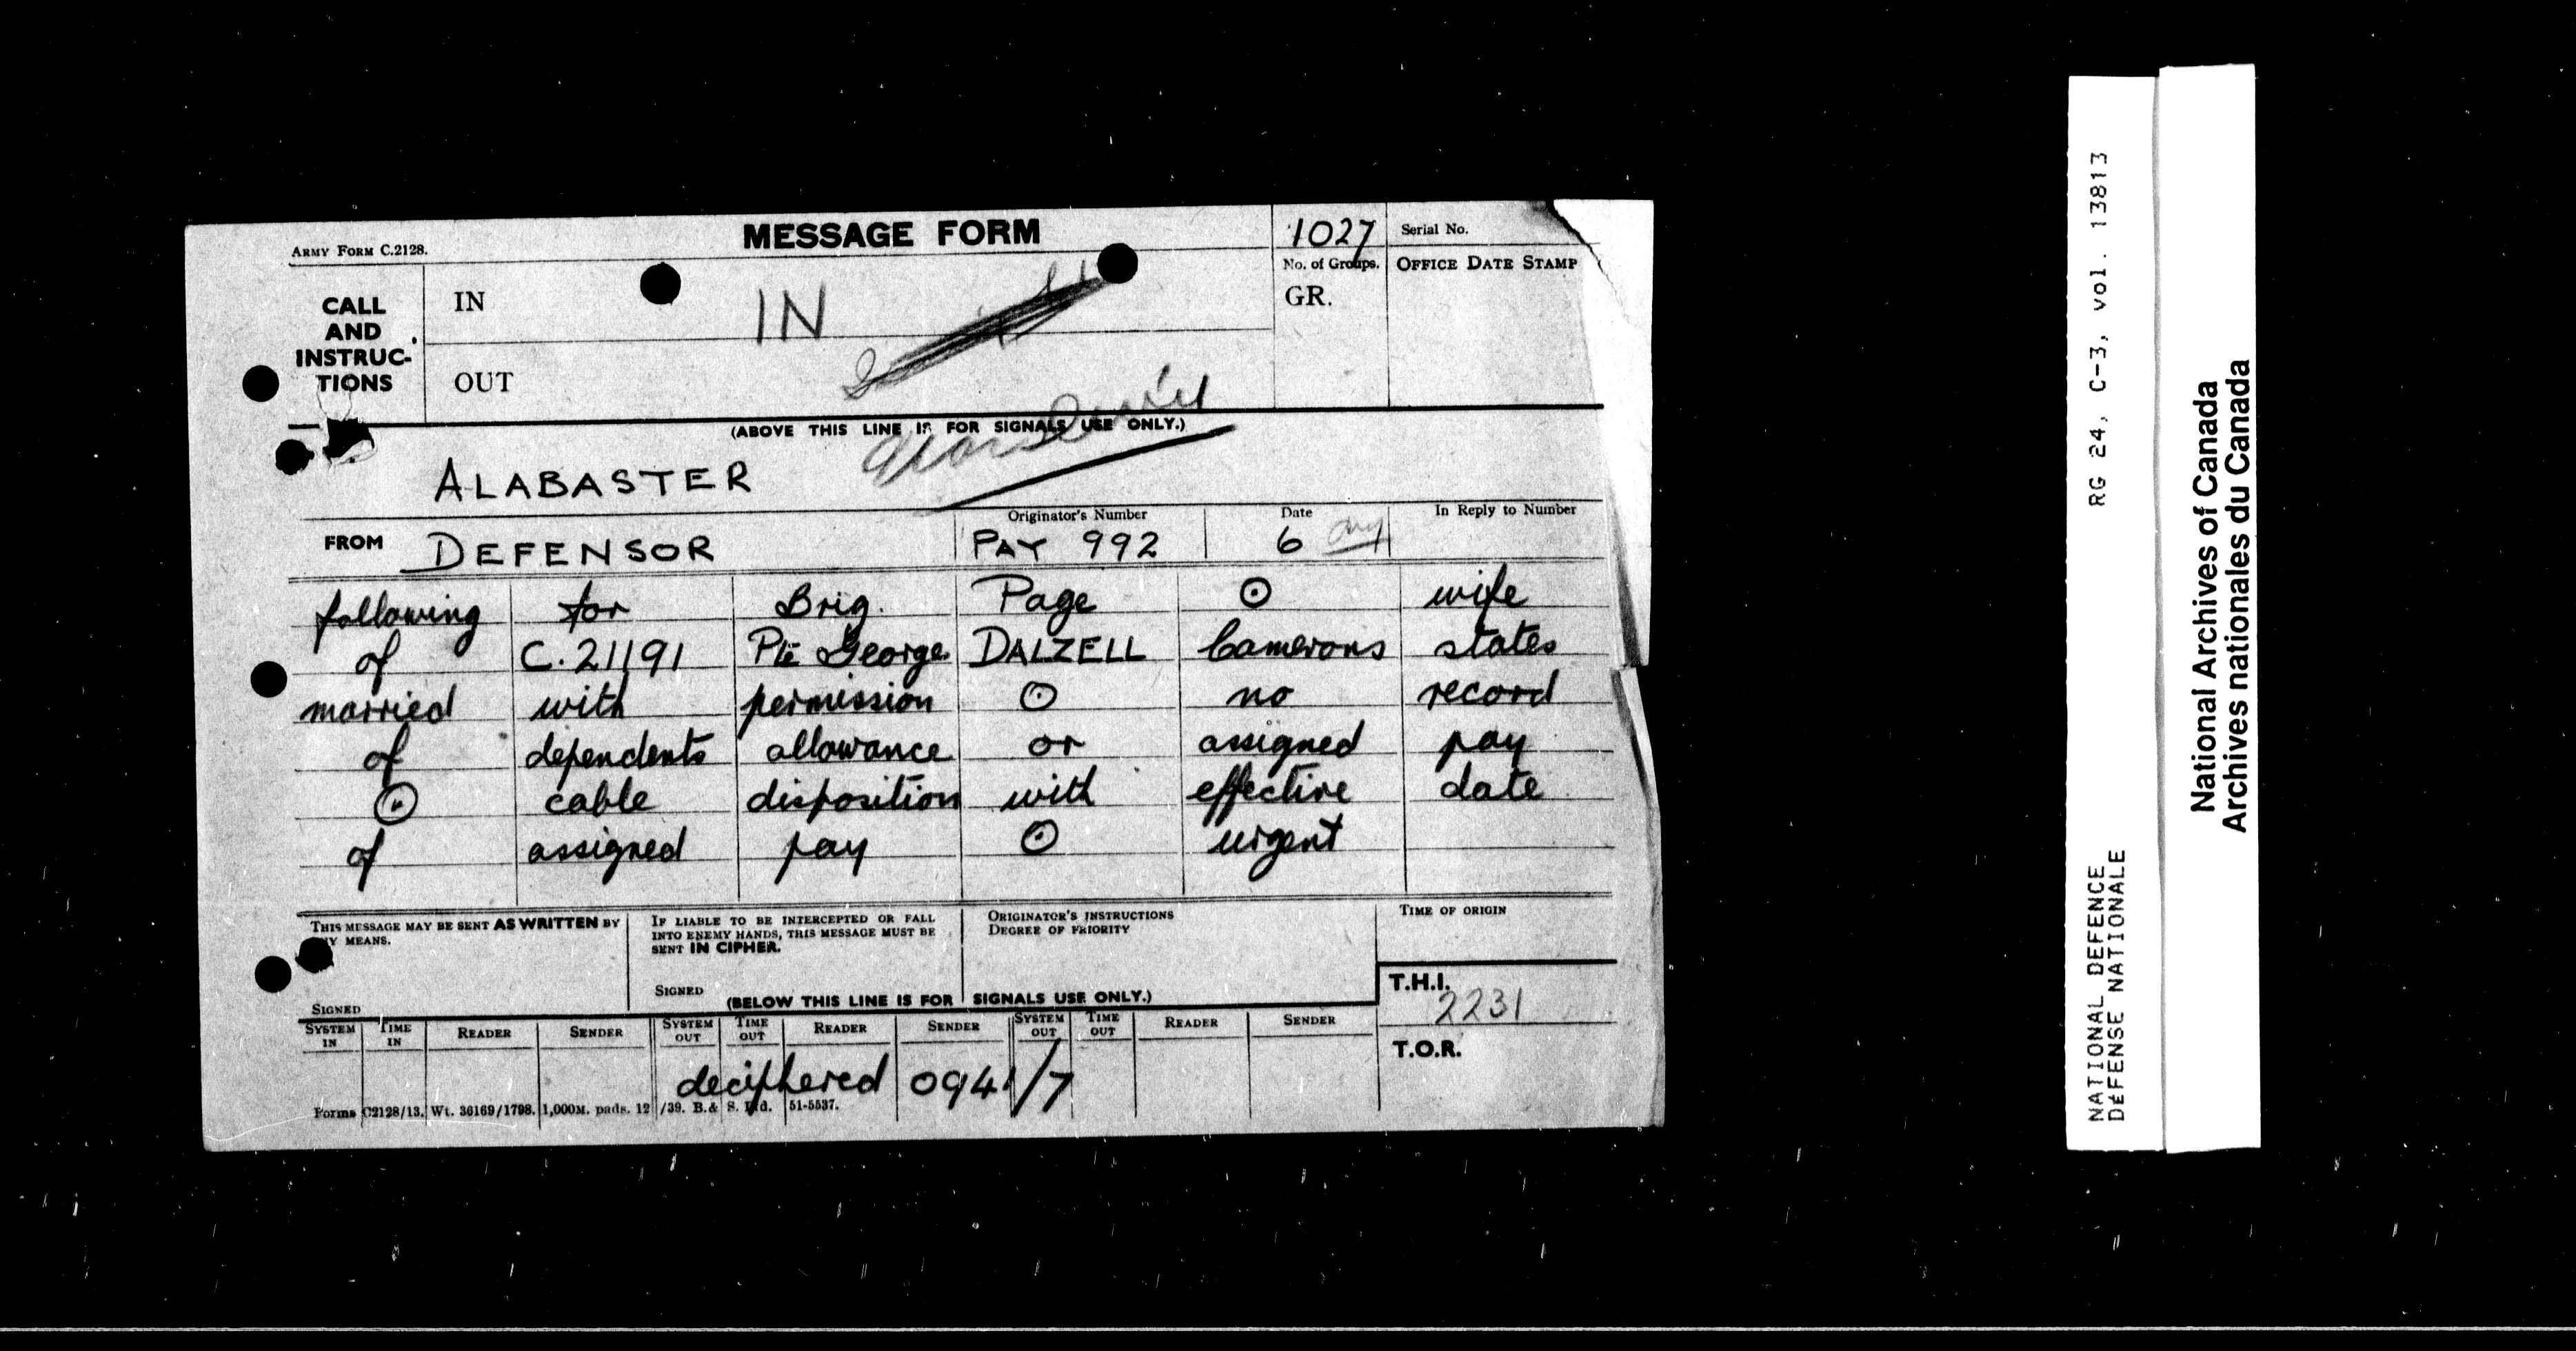 ARMY FORM C.2128.
MESSAGE FORM
1027
Serial No.
No. of Groups.
OFFICE DATE STAMP
CALL AND INSTRUC-TIONS
IN
IN
GR.
OUT
(ABOVE THIS LINE IS FOR SIGNALS USE ONLY.)
ALABASTER
FROM DEFENSOR
Originator's Number
PAY 992
Date
6
In Reply to Number
following for Brig. Page ⊙ wife
of C.21191 Pte George DALZELL Camerons states
married with permission ⊙ no record
of dependents allowance or assigned pay
⊙ cable disposition with effective date
of assigned pay ⊙ urgent
THIS MESSAGE MAY BE SENT AS WRITTEN BY
MEANS.
SIGNED
IF LIABLE TO BE INTERCEPTED OR FALL
INTO ENEMY HANDS, THIS MESSAGE MUST BE
SENT IN CIPHER.
SIGNED
ORIGINATOR'S INSTRUCTIONS
DEGREE OF PRIORITY
TIME OF ORIGIN
(BELOW THIS LINE IS FOR SIGNALS USE ONLY.)
T.H.I.
2231
T.O.R.
SYSTEM IN TIME IN READER SENDER SYSTEM OUT TIME OUT READER SENDER SYSTEM OUT TIME OUT READER SENDER
deciphered 0941/7
Forms C2128/13. Wt. 36169/1798. 1,000M. pads. 12/39. B.& S. Ltd. 51-5537.
RG 24, C-3, vol. 13813
NATIONAL DEFENCE
DÉFENSE NATIONALE
National Archives of Canada
Archives nationales du Canada